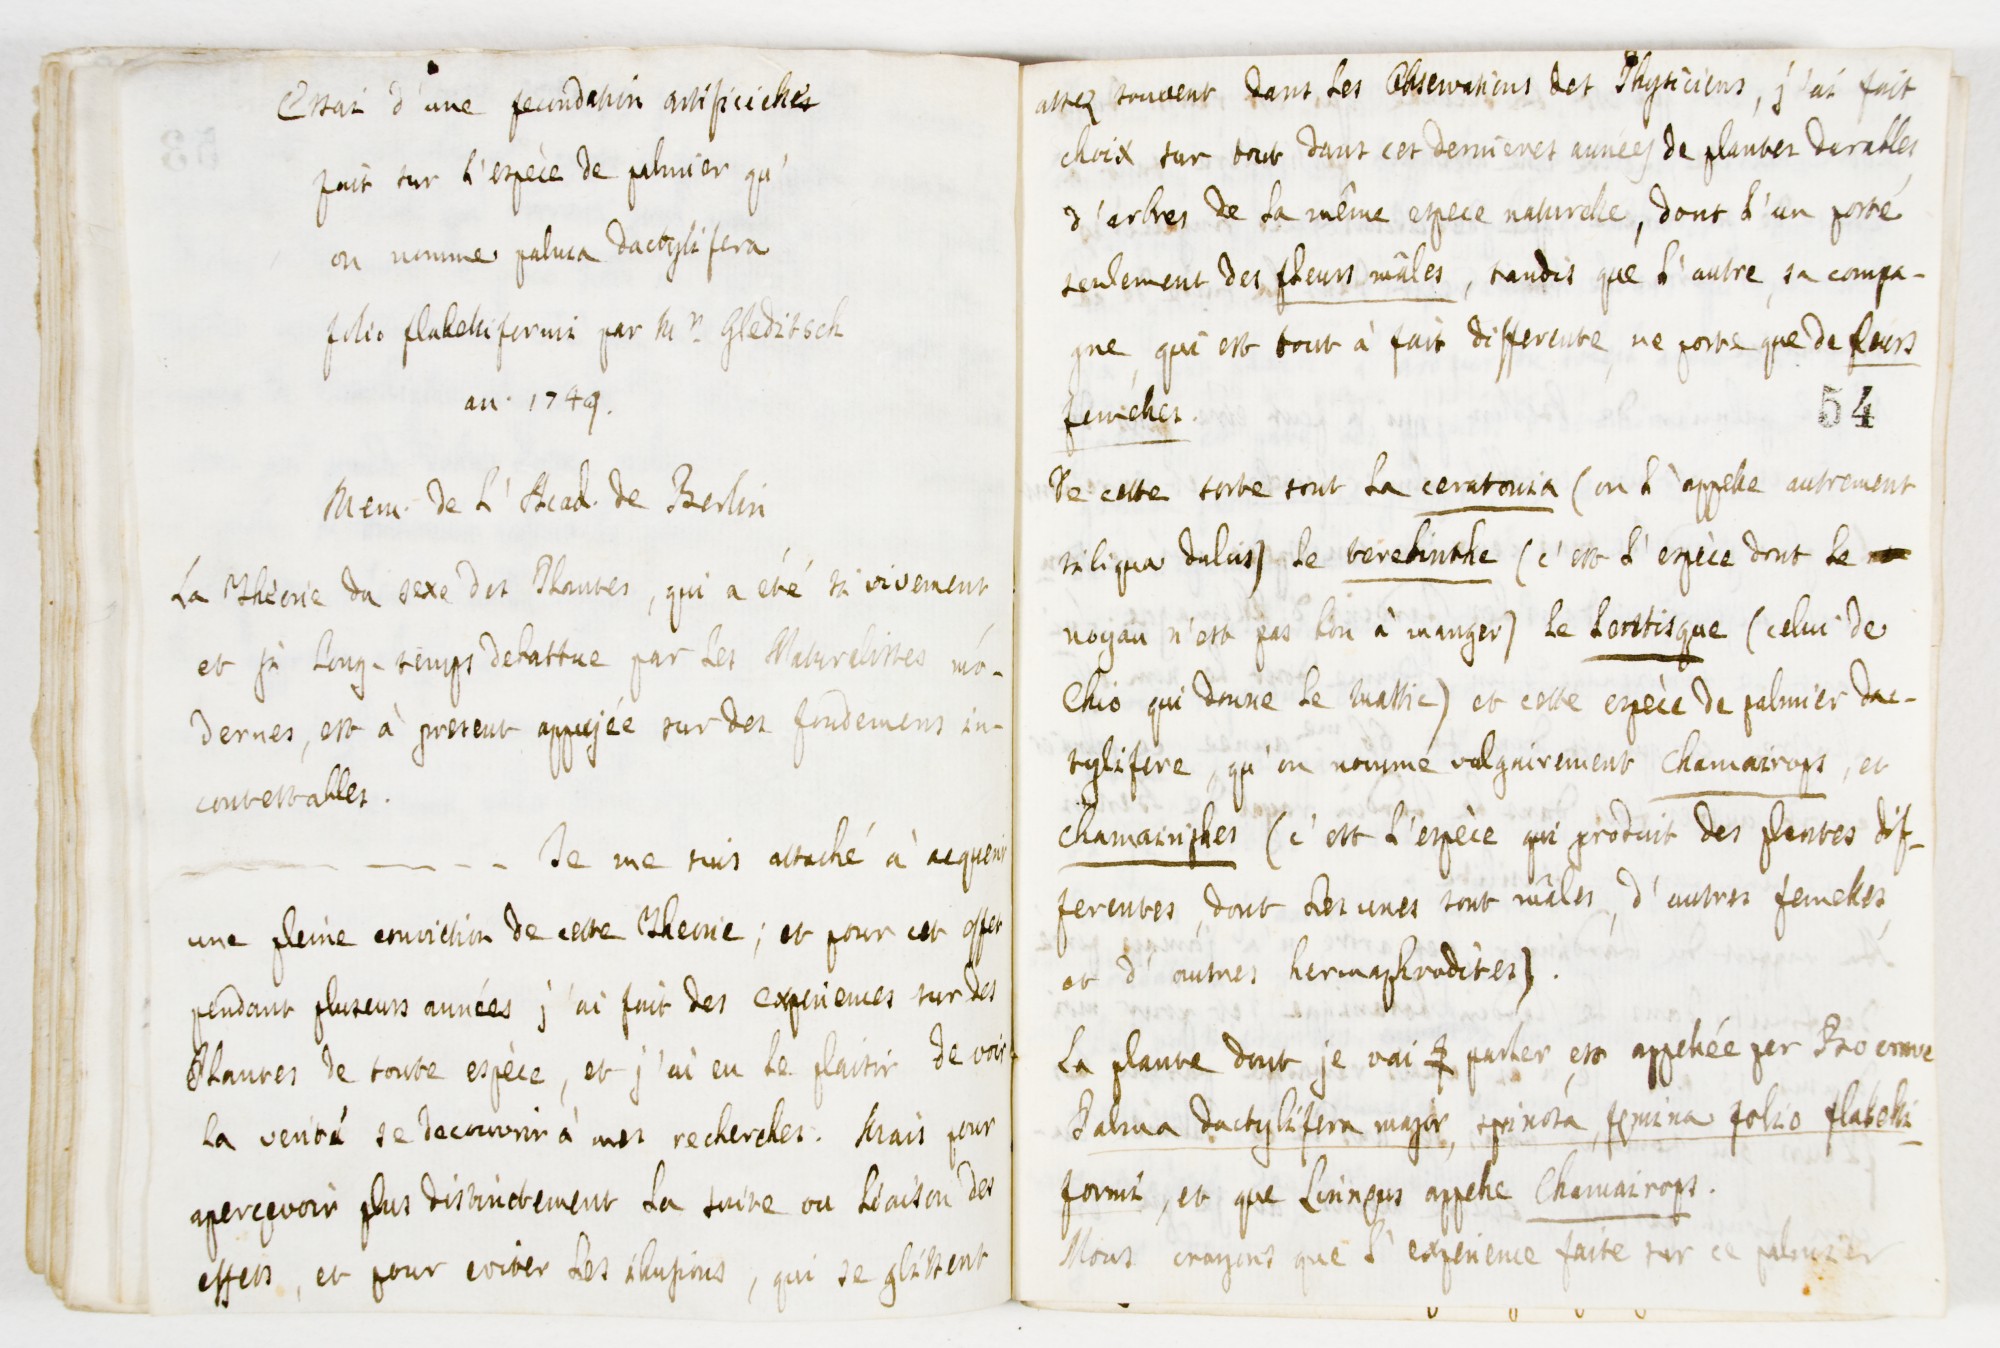 Essai d'une fecundation artificielles
fait sur l'espèce de palmier qu'
on nomme palma dactylifera
folio flabelliformi par Mr. Gleditsch
an. 1749.
Mem. de l'Acad. de Berlin
La Théorie du sexe des Plantes, qui a été si vivement
et si long-temps debattue par les Naturalistes mo-
dernes, est à present appujée sur des fondemens in-
contestables.
Je me suis attaché à acquerir
une pleine conviction de cette Theorie; et pour cet effet
pendant pluseurs années j'ai fait des experiences sur des
Plantes de toute espèce, et j'ai eu le plaisir de voir
la verité se decouvrir à mes recherches. Mais pour
apercevoir plus distinctement la suite ou liaison des
effets, et pour eviter les illusions, qui se glissent
assez souvent dans les Observations des Physiciens, j'ai fait
choix sur tout dans ces dernieres années de plantes durables,
d'arbres de la même espece naturelle, dont l'un porte
seulement des fleurs mâles, tandis que l'autre, sa compa-
gne, qui est tout à fait differente, ne porte que de fleurs
femelles.
54
De cette sorte sont la ceratonia (on l'appelle autrement
siliqua dulcis) le terebinthe (c'est l'espèce dont le
noyau n'est pas bon à manger) le lentisque (celui de
Chio qui donne le mastic) et cette espèce de palmier dac-
tylifere, qu'on nomme vulgairement Chamairops, et
chamairiphes (c'est l'espèce qui produit des plantes dif-
ferentes, dont les unes sont mâles, d'autres femelles,
et d'autres hermaphrodites).
La plante dont je vai parler est appellée per
Palma dactylifera major, spinosa, femina folio flabelli
formi, et que Linnæus appelle Chamairops.
Nous croyons que l'experience faite sur ce palmier